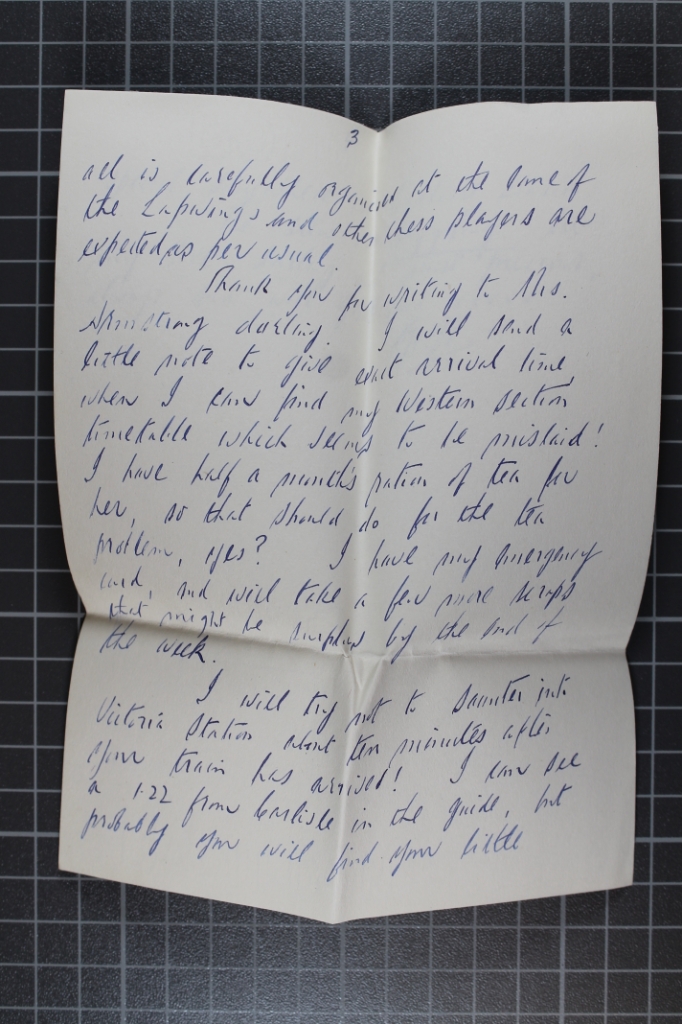 3
all is carefully organised at the home of
the Lapwings and other chess players are
expected as per usual.
Thank you for writing to Mrs.
Armstrong darling. I will send a
little note to give exact arrival time,
when I can find my Western section
timetable which seems to be mislaid!
I have half a month's ration of tea for
her, so that should do for the tea
problem, yes? I have my emergency
card, and will take a few more scraps
that might be surplus by the end of
the week.
I will try not to saunter into
Victoria Station about ten minutes after
your train has arrived! I can see
a 1.22 from Carlisle in the guide, but
probably you will find your little